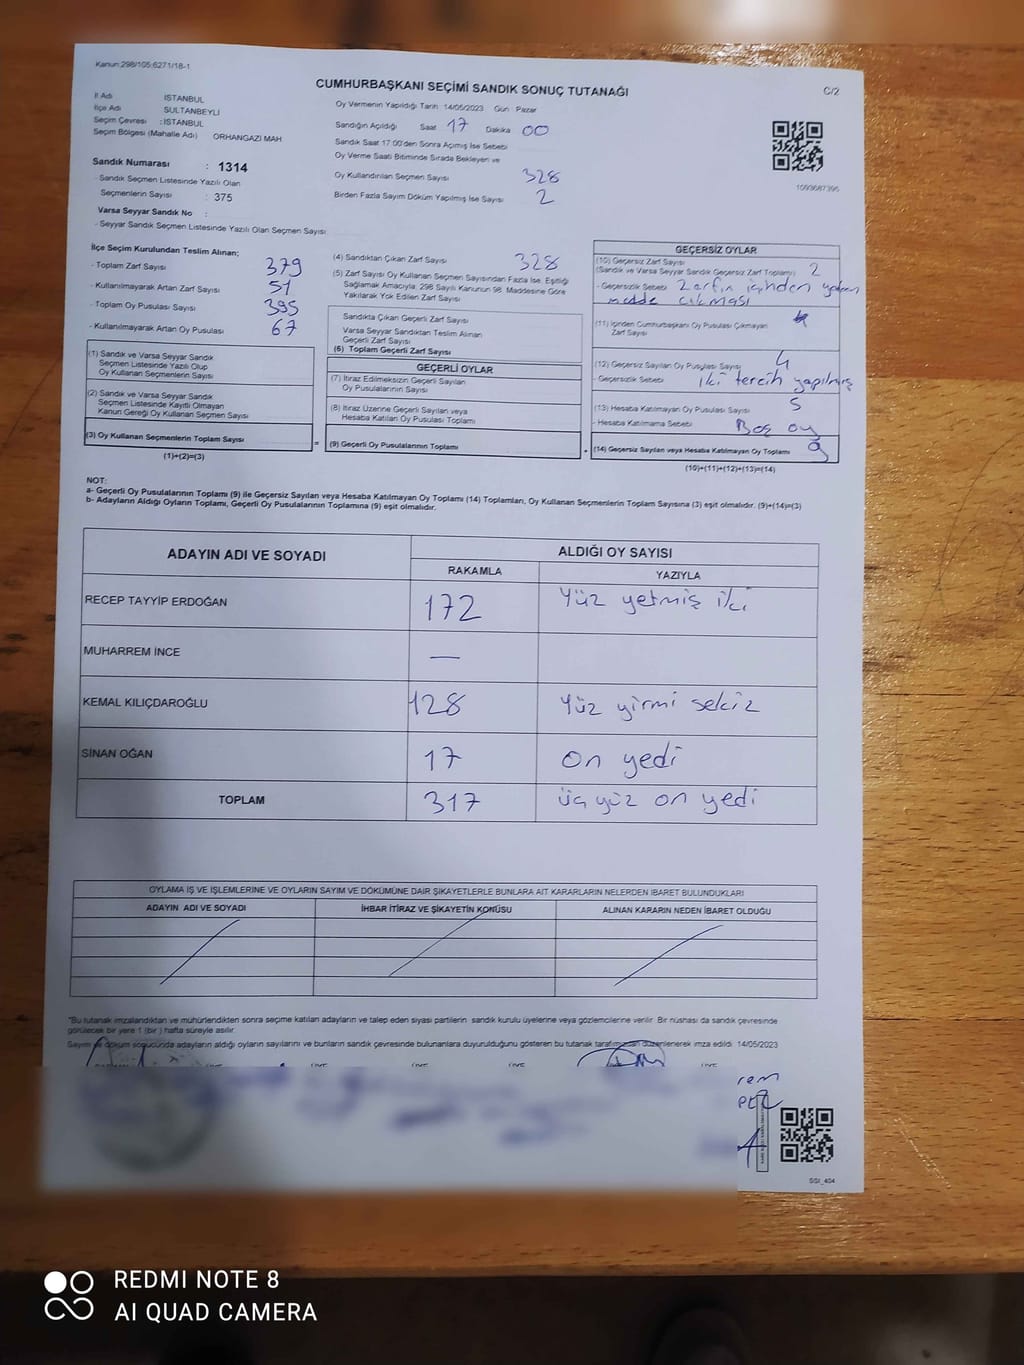 Kanun:298/105:6271/18-1
CUMHURBAŞKANI SEÇİMİ SANDIK SONUÇ TUTANAĞI
C/2
İl Adı İSTANBUL
İlçe Adı SULTANBEYLİ
Seçim Çevresi : İSTANBUL
Seçim Bölgesi (Mahalle Adı) ORHANGAZİ MAH
Sandık Numarası : 1314
- Sandık Seçmen Listesinde Yazılı Olan
Seçmenlerin Sayısı : 375
Varsa Seyyar Sandık No :
- Seyyar Sandık Seçmen Listesinde Yazılı Olan Seçmen Sayısı
Oy Vermenin Yapıldığı Tarih 14/05/2023 Gün : Pazar
Sandığın Açıldığı Saat 17 Dakika 00
Sandık Saat 17.00'den Sonra Açımış İse Sebebi
Oy Verme Saati Bitiminde Sırada Bekleyen ve
Oy Kullandırılan Seçmen Sayısı 328
Birden Fazla Sayım Döküm Yapılmış İse Sayısı 2
1093687395
İlçe Seçim Kurulundan Teslim Alınan;
- Toplam Zarf Sayısı 379
- Kullanılmayarak Artan Zarf Sayısı 51
- Toplam Oy Pusulası Sayısı 395
- Kullanılmayarak Artan Oy Pusulası 67
(1) Sandık ve Varsa Seyyar Sandık
Seçmen Listesinde Yazılı Olup
Oy Kullanan Seçmenlerin Sayısı
(2) Sandık ve Varsa Seyyar Sandık
Seçmen Listesinde Kayıtlı Olmayan
Kanun Gereği Oy Kullanan Seçmen Sayısı
(3) Oy Kullanan Seçmenlerin Toplam Sayısı
(1)+(2)=(3)
=
(4) Sandıktan Çıkan Zarf Sayısı 328
(5) Zarf Sayısı Oy Kullanan Seçmen Sayısından Fazla İse, Eşitliği
Sağlamak Amacıyla, 298 Sayılı Kanunun 98. Maddesine Göre
Yakılarak Yok Edilen Zarf Sayısı
Sandıkta Çıkan Geçerli Zarf Sayısı
Varsa Seyyar Sandıktan Teslim Alınan
Geçerli Zarf Sayısı
(6) Toplam Geçerli Zarf Sayısı
GEÇERLİ OYLAR
(7) İtiraz Edilmeksizin Geçerli Sayılan
Oy Pusulalarının Sayısı
(8) İtiraz Üzerine Geçerli Sayılan veya
Hesaba Katılan Oy Pusulası Toplamı
(9) Geçerli Oy Pusulalarının Toplamı
GEÇERSİZ OYLAR
(10) Geçersiz Zarf Sayısı
(Sandık ve Varsa Seyyar Sandık Geçersiz Zarf Toplamı) 2
- Geçersizlik Sebebi Zarfın içinden
madde çıkması
(11) İçinden Cumhurbaşkanı Oy Pusulası Çıkmayan
Zarf Sayısı
(12) Geçersiz Sayılan Oy Pusulası Sayısı 4
- Geçersizlik Sebebi İki tercih yapılmış
(13) Hesaba Katılmayan Oy Pusulası Sayısı 5
- Hesaba Katılmama Sebebi Boş oy
(14) Geçersiz Sayılan veya Hesaba Katılmayan Oy Toplamı 9
(10)+(11)+(12)+(13)=(14)
NOT:
a- Geçerli Oy Pusulalarının Toplamı (9) ile Geçersiz Sayılan veya Hesaba Katılmayan Oy Toplamı (14) Toplamları, Oy Kullanan Seçmenlerin Toplam Sayısına (3) eşit olmalıdır. (9)+(14)=(3)
b- Adayların Aldığı Oyların Toplamı, Geçerli Oy Pusulalarının Toplamına (9) eşit olmalıdır.
ADAYIN ADI VE SOYADI
ALDIĞI OY SAYISI
RAKAMLA YAZIYLA
RECEP TAYYİP ERDOĞAN 172 Yüz yetmiş iki
MUHARREM İNCE —
KEMAL KILIÇDAROĞLU 128 Yüz yirmi sekiz
SİNAN OĞAN 17 on yedi
TOPLAM 317 üçyüz on yedi
OYLAMA İŞ VE İŞLEMLERİNE VE OYLARIN SAYIM VE DÖKÜMÜNE DAİR ŞİKAYETLERLE BUNLARA AİT KARARLARIN NELERDEN İBARET BULUNDUKLARI
ADAYIN ADI VE SOYADI İHBAR İTİRAZ VE ŞİKAYETİN KONUSU ALINAN KARARIN NEDEN İBARET OLDUĞU
*Bu tutanak imzalandıktan ve mühürlendikten sonra seçime katılan adayların ve talep eden siyasi partilerin sandık kurulu üyelerine veya gözlemcilerine verilir. Bir nüshası da sandık çevresinde
görülecek bir yere 1 (bir ) hafta süreyle asılır.
Sayım ve döküm sonucunda adayların aldığı oyların sayılarını ve bunların sandık çevresinde bulunanlara duyurulduğunu gösteren bu tutanak tarafımızdan düzenlenerek imza edildi. 14/05/2023
ÜYE ÜYE ÜYE ÜYE
SSİ_404
REDMI NOTE 8
AI QUAD CAMERA